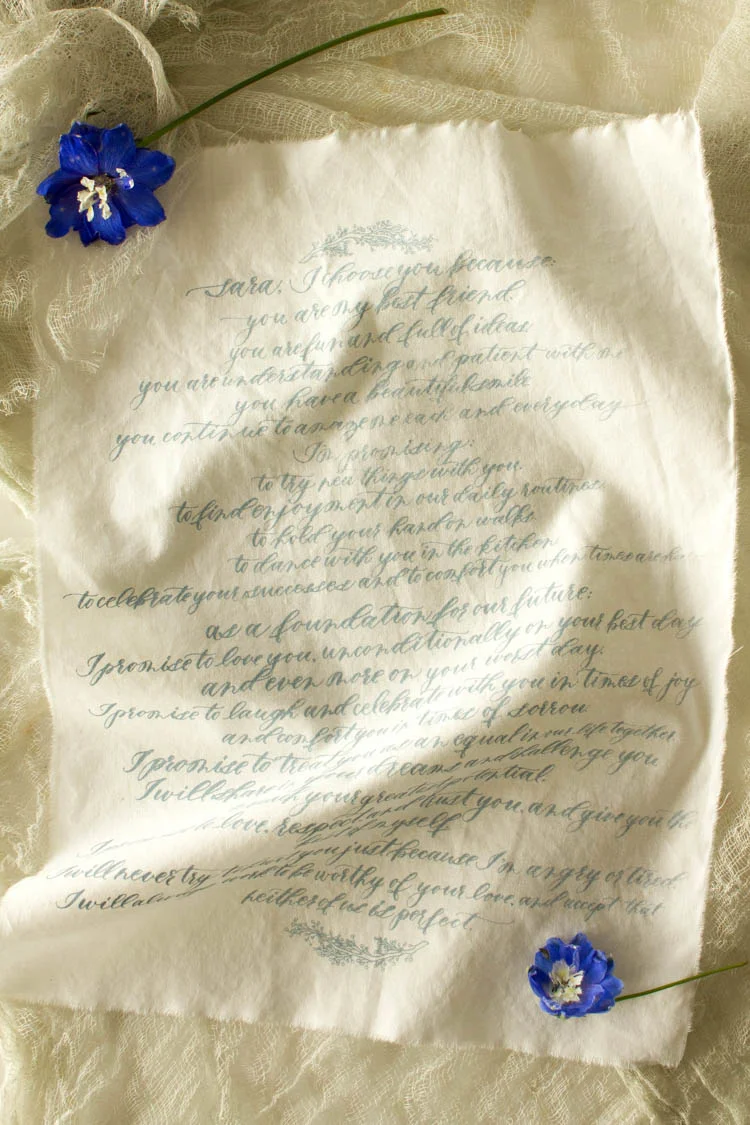 Sara, I choose you because:
you are my best friend.
you are fun and full of ideas
you are understanding and patient with me
you have a beautiful smile
you continue to amaze me each and everyday
I'm promising:
to try new things with you.
to find enjoyment in our daily routines.
to hold your hand on walks
to dance with you in the kitchen
to celebrate your successes and to comfort you when times are
as a foundation for our future:
I promise to love you, unconditionally on your best day
and even more on your worst day.
I promise to laugh and celebrate with you in times of joy
and comfort you in times of sorrow
I promise to treat you as an equal in our life together
I will share in your dreams and challenge you
your greatest potential.
love, respect and trust you, and give you the
of myself
I will never try to you just because I'm angry or tired.
I will to be worthy of your love, and accept that
neither of us is perfect.